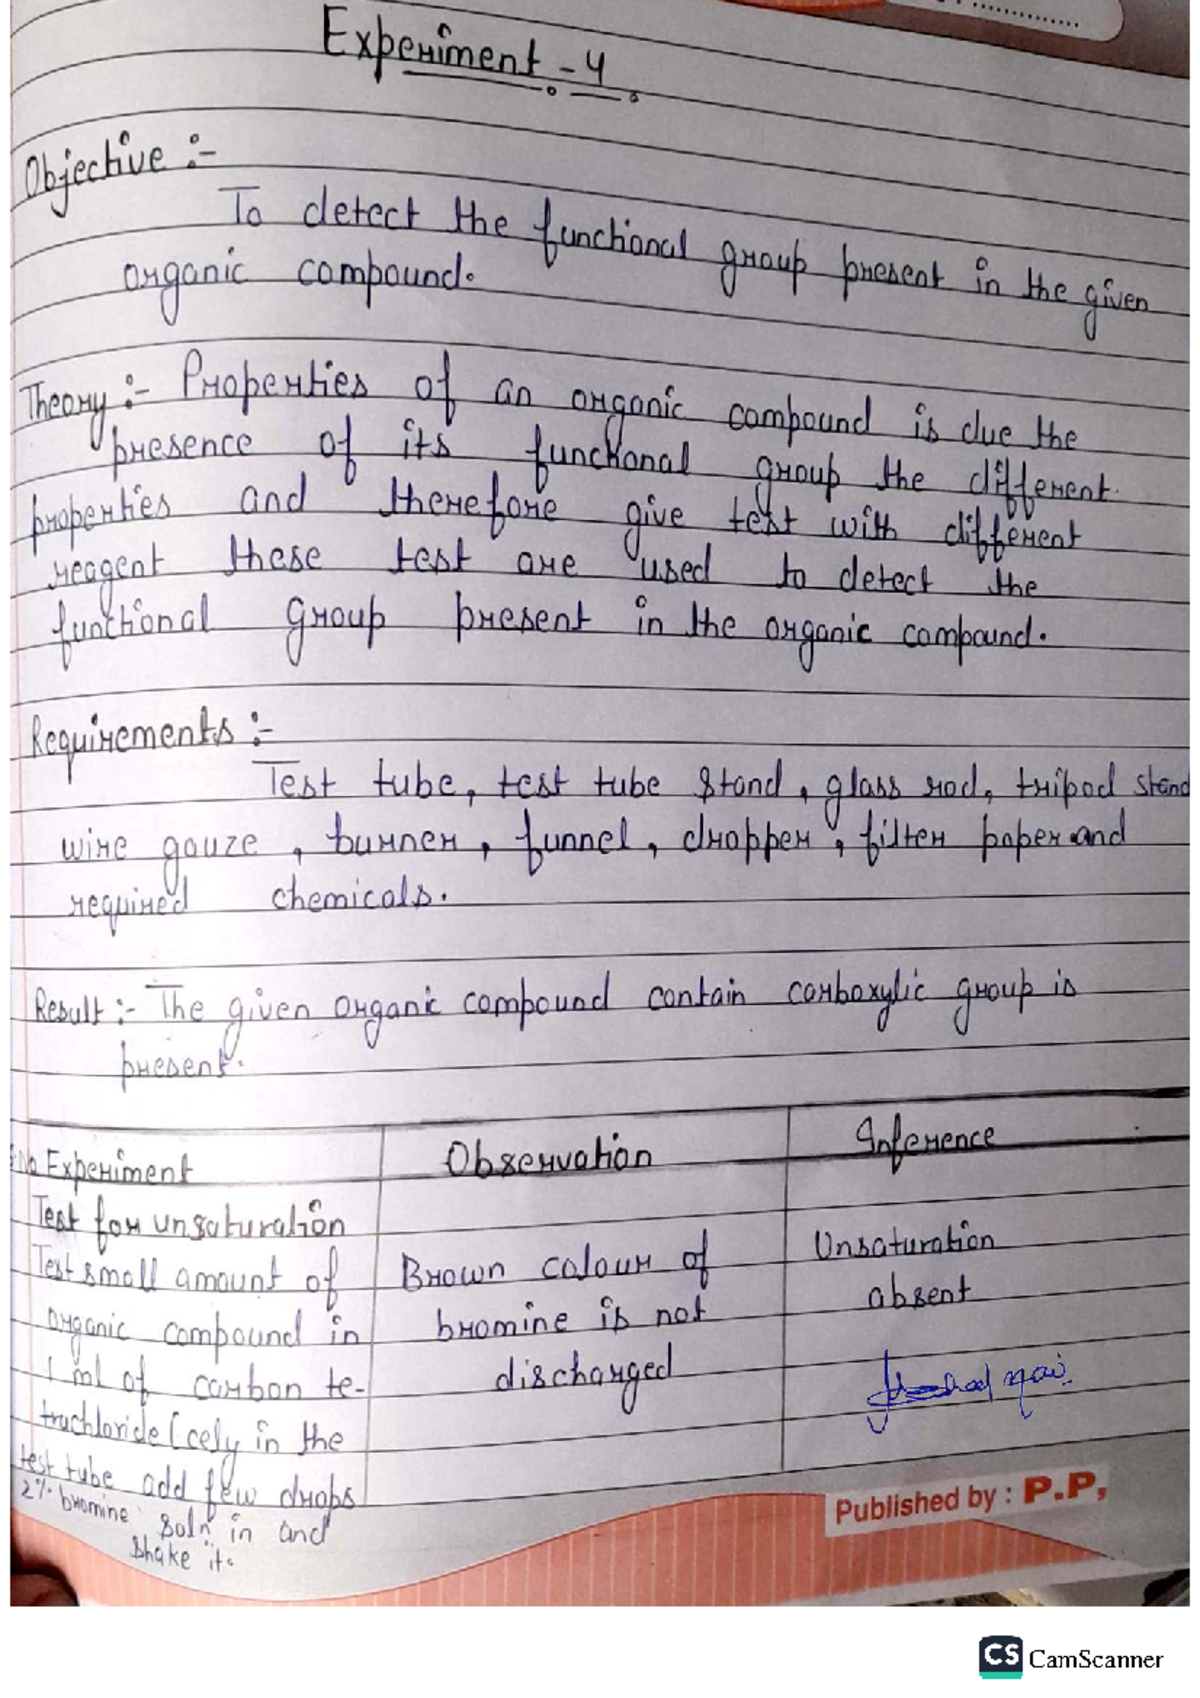 Experiment - 4
Objective :-
To detect the functional group present in the given
organic compound.
Theory :- Properties of an organic compound is due the
presence of its functional group the different
properties and therefore give test with different
reagent these test are used to detect the
functional group present in the organic compound.
Requirements :-
Test tube, test tube stand, glass rod, tripod stand
wire gauze, burner, funnel, dropper, filter paper and
required chemicals.
Result :- The given organic compound contain carboxylic group is
present.
No Experiment Observation Inference
Test for unsaturation
Test small amount of Brown colour of Unsaturation
organic compound in bromine is not absent
1 ml of carbon te- discharged
trachloride (cely in the
test tube add few drops
2% bromine soln in and
shake it.
Published by : P.P,
CS CamScanner